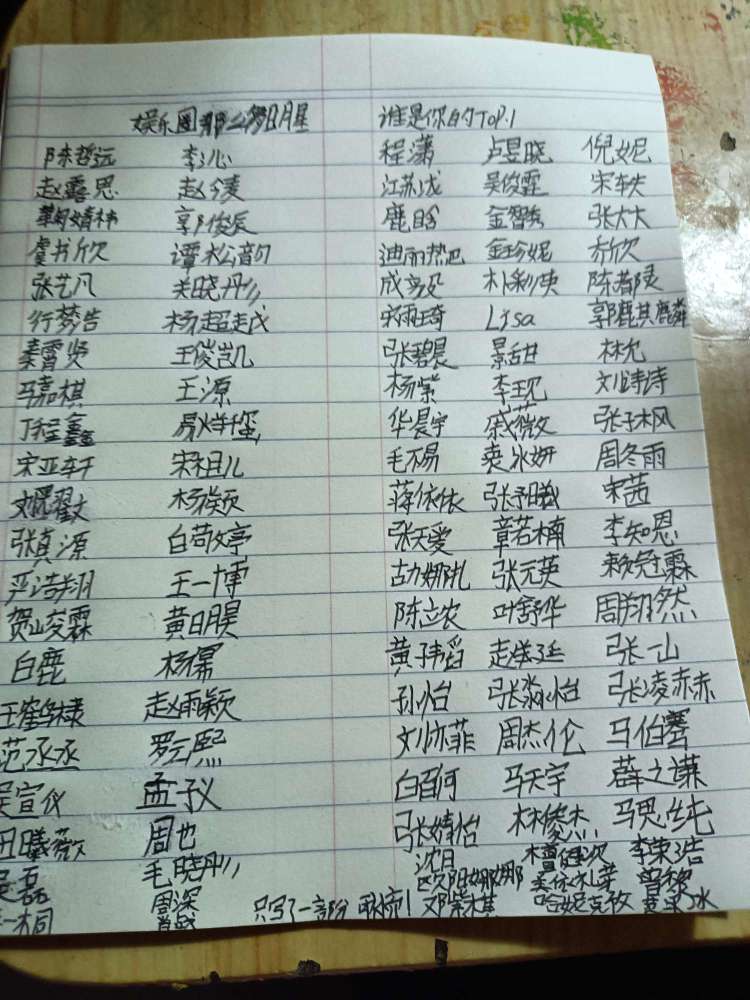 娱乐圈那么多明星 谁是你的Top.1
陈哲远 李沁 程潇 卢昱晓 倪妮
赵露思 赵今麦 江苏成 吴俊霆 宋轶
鞠婧祎 郭俊辰 鹿晗 金智秀 张大大
虞书欣 谭松韵 迪丽热巴 金珍妮 乔欣
张艺凡 关晓彤 成毅 朴彩英 陈都灵
行梦告 杨超越 宋雨琦 Lisa 郭麒麟
秦霄贤 王俊凯 张碧晨 景甜 林允
马嘉祺 王源 杨紫 李现 刘诗诗
丁程鑫 易烊千玺 华晨宇 戚薇 张子枫
宋亚轩 宋祖儿 毛不易 周冬雨
刘耀文 杨颖 蒋依依 张予曦 宋茜
张真源 白敬亭 张天爱 章若楠 李知恩
严浩翔 王一博 古力娜扎 张元英 赖冠霖
贺峻霖 黄日月昊 陈立农 叶舒华 周翔然
白鹿 杨幂 黄子韬 张一山
王鹤棣 赵雨颖 孙怡 张淼怡 张凌赫
范丞丞 罗云熙 刘亦菲 周杰伦 马伯骞
吴宣仪 孟子义 白百何 马天宇 薛之谦
田曦薇 周也 张婧怡 林俊杰 马思纯
吴磊 毛晓彤 沈月 李荣浩
周深 欧阳娜娜 曾黎
只写了一部分 邓紫棋 哈妮克孜